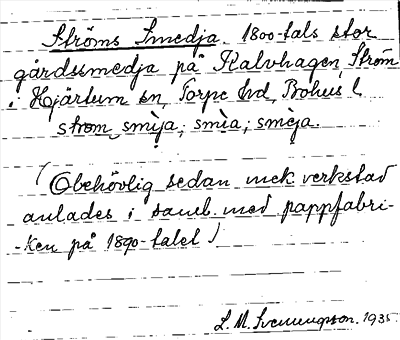 Ströms Smedja. 1800-tals stor
gårdssmedja på Kalvhagen, Ström
i Hjärtum sn, Torpe hd, Bohus l.
strøm smija; smìa; smeja.
(Obehövlig sedan mek. verkstad
anlades i samb. med pappfabri-
-ken på 1890-talet)
L. M. Svenungsson. 1935